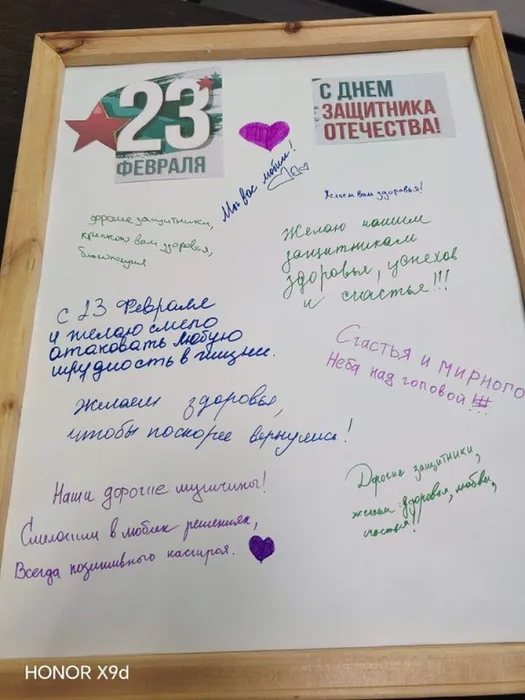 23
ФЕВРАЛЯ
С ДНЕМ
ЗАЩИТНИКА
ОТЕЧЕСТВА!
Мы вас любим!
Желаем вам здоровья!
дорогие защитники,
крепкого вам здоровья,
благополучия
Желаю нашим
защитникам
здоровья, успехов
и счастья!!!
С 23 Февраля
и желаю смело
атаковать любую
трудность в жизни.
Счастья и мирного
Неба над головой!!!
Желаем здоровья,
чтобы поскорее вернулись!
Наши дорогие мужчины!
Смелости в любых решениях,
Всегда позитивного настроя.
Дорогие защитники,
желаем здоровья, любви,
счастья!!
HONOR X9d